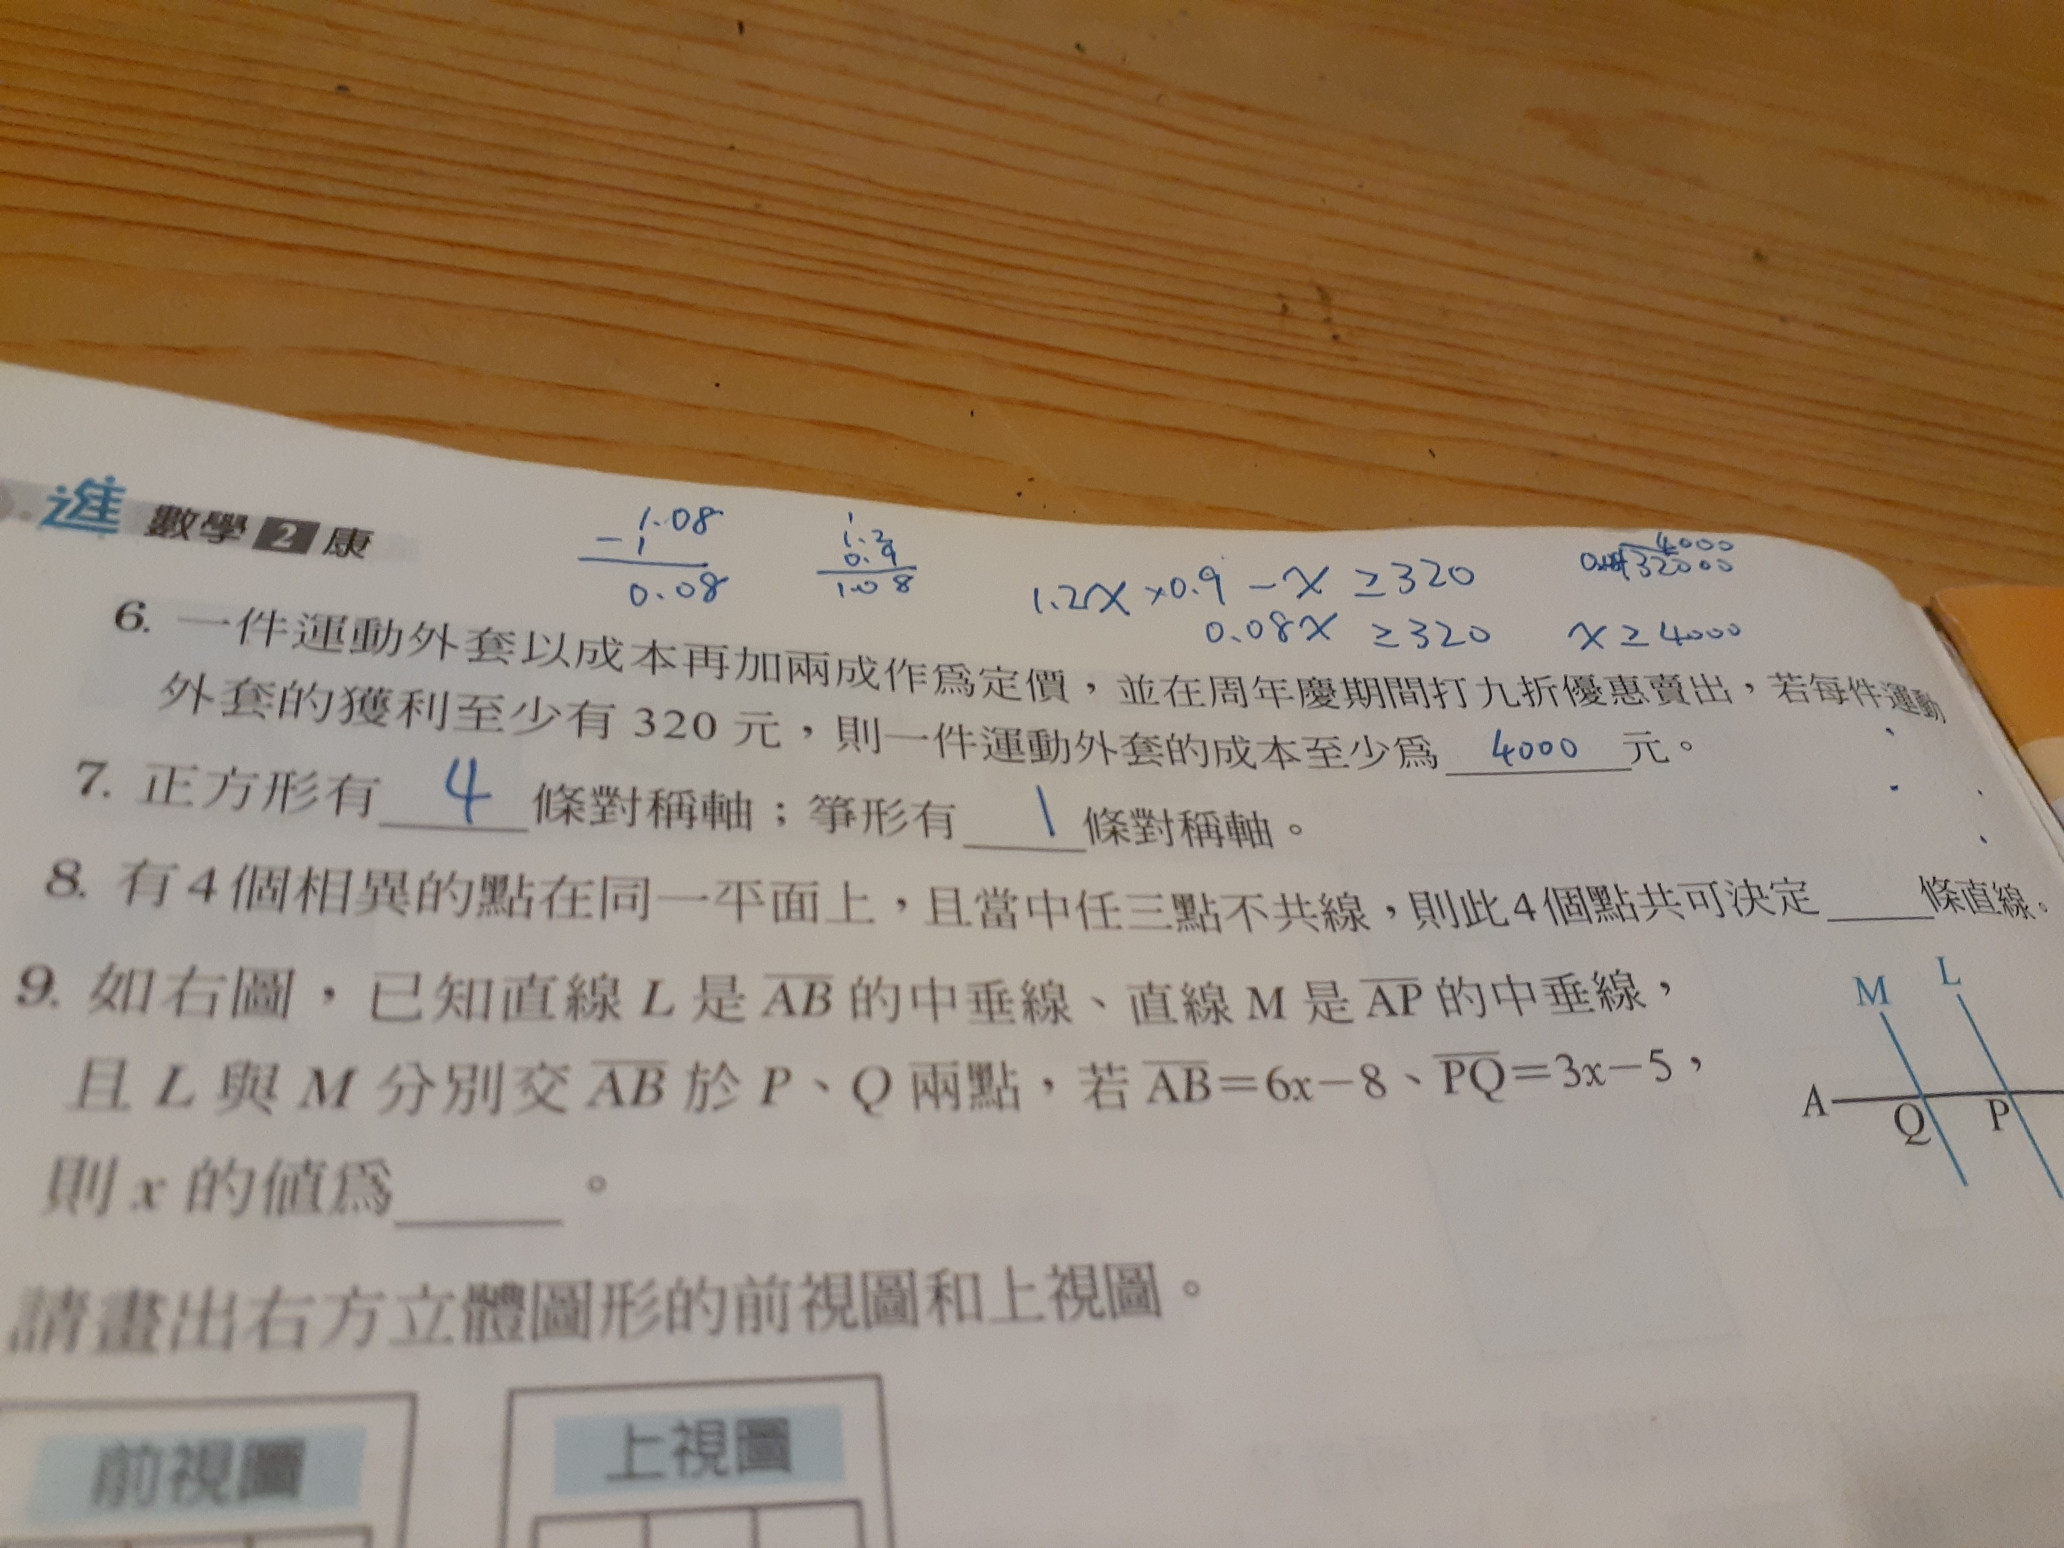 進 數學 2 康
1.08
-1
0.08
1
1.2
0.9
1.08
1.2x×0.9-x≥320
0.08x≥320 x≥4000
4000
32000
6. 一件運動外套以成本再加兩成作為定價，並在周年慶期間打九折優惠賣出，若每件運動
外套的獲利至少有 320 元，則一件運動外套的成本至少為 4000 元。
7. 正方形有 4 條對稱軸；箏形有 1 條對稱軸。
8. 有4個相異的點在同一平面上，且當中任三點不共線，則此4個點共可決定____條直線。
9. 如右圖，已知直線 L 是 A̅B̅ 的中垂線、直線 M 是 A̅P̅ 的中垂線，
且 L 與 M 分別交 A̅B̅ 於 P、Q 兩點，若 A̅B̅=6x-8、P̅Q̅=3x-5，
則 x 的值為____。
M L
A Q P
請畫出右方立體圖形的前視圖和上視圖。
前視圖 上視圖